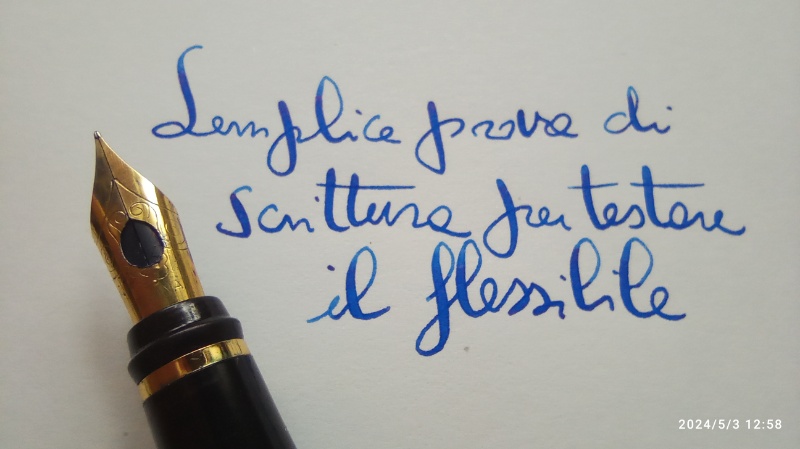 Semplice prova di
scrittura per testare
il flessibile
2024/5/3 12:58